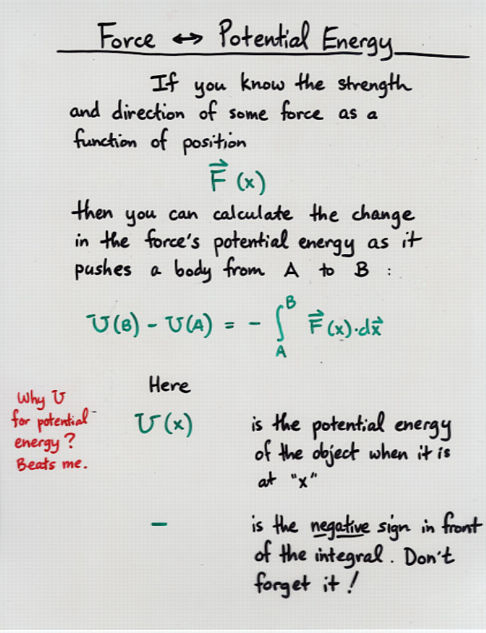 Force ↔ Potential Energy
If you know the strength
and direction of some force as a
function of position
F⃗ (x)
then you can calculate the change
in the force's potential energy as it
pushes a body from A to B :
U(B) - U(A) = - ∫_A^B F⃗(x)·dx⃗
Here
Why U
for potential
energy?
Beats me.
U(x)
is the potential energy
of the object when it is
at "x"
-
is the negative sign in front
of the integral. Don't
forget it!